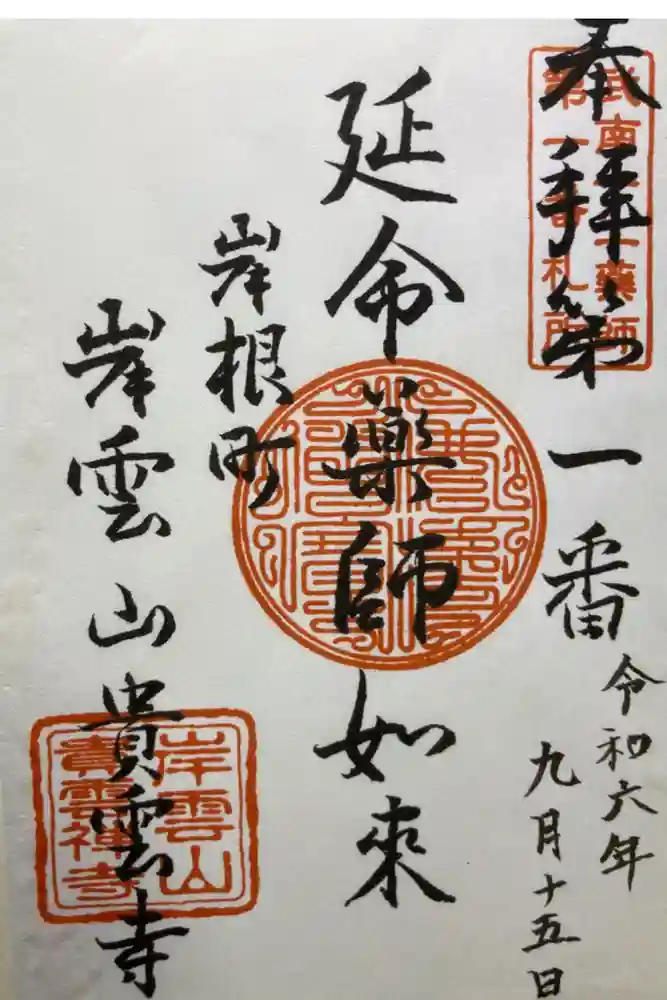 奉拝第一番
武南十二薬師
第一番札所
令和六年
九月十五日
延命薬師如来
岸根町
岸雲山貴雲寺
岸雲山
貴雲禅寺